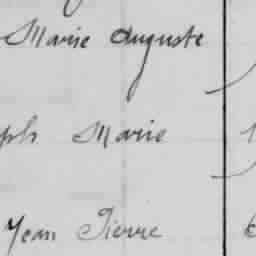 Marie Auguste
ph Marie
Jean Pierre